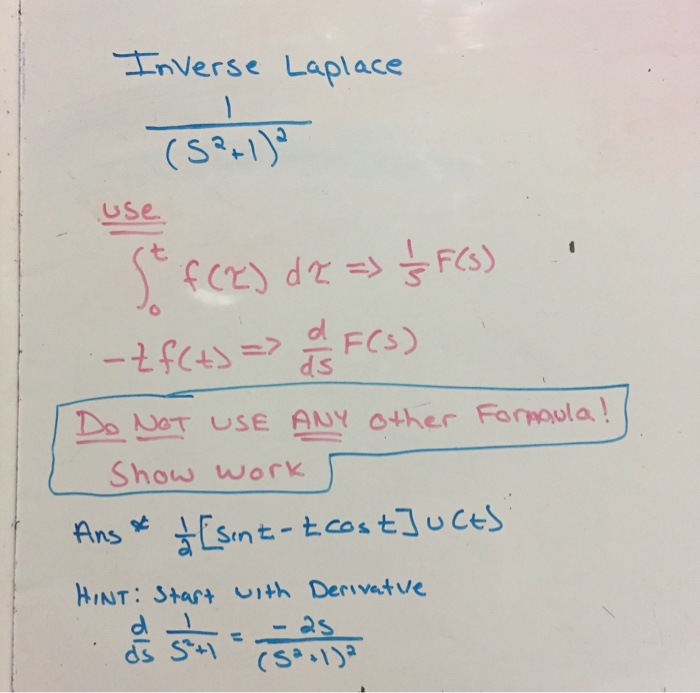 Inverse Laplace
1
(S²+1)²
use
∫₀ᵗ f(τ) dτ => 1/s F(s)
-t f(t) => d/ds F(s)
Do NOT USE ANY other Formaula!
Show work
Ans * 1/2 [sint - t cos t] u(t)
HINT: Start with Derivatve
d/ds 1/(S²+1) = -2s/(S²+1)²